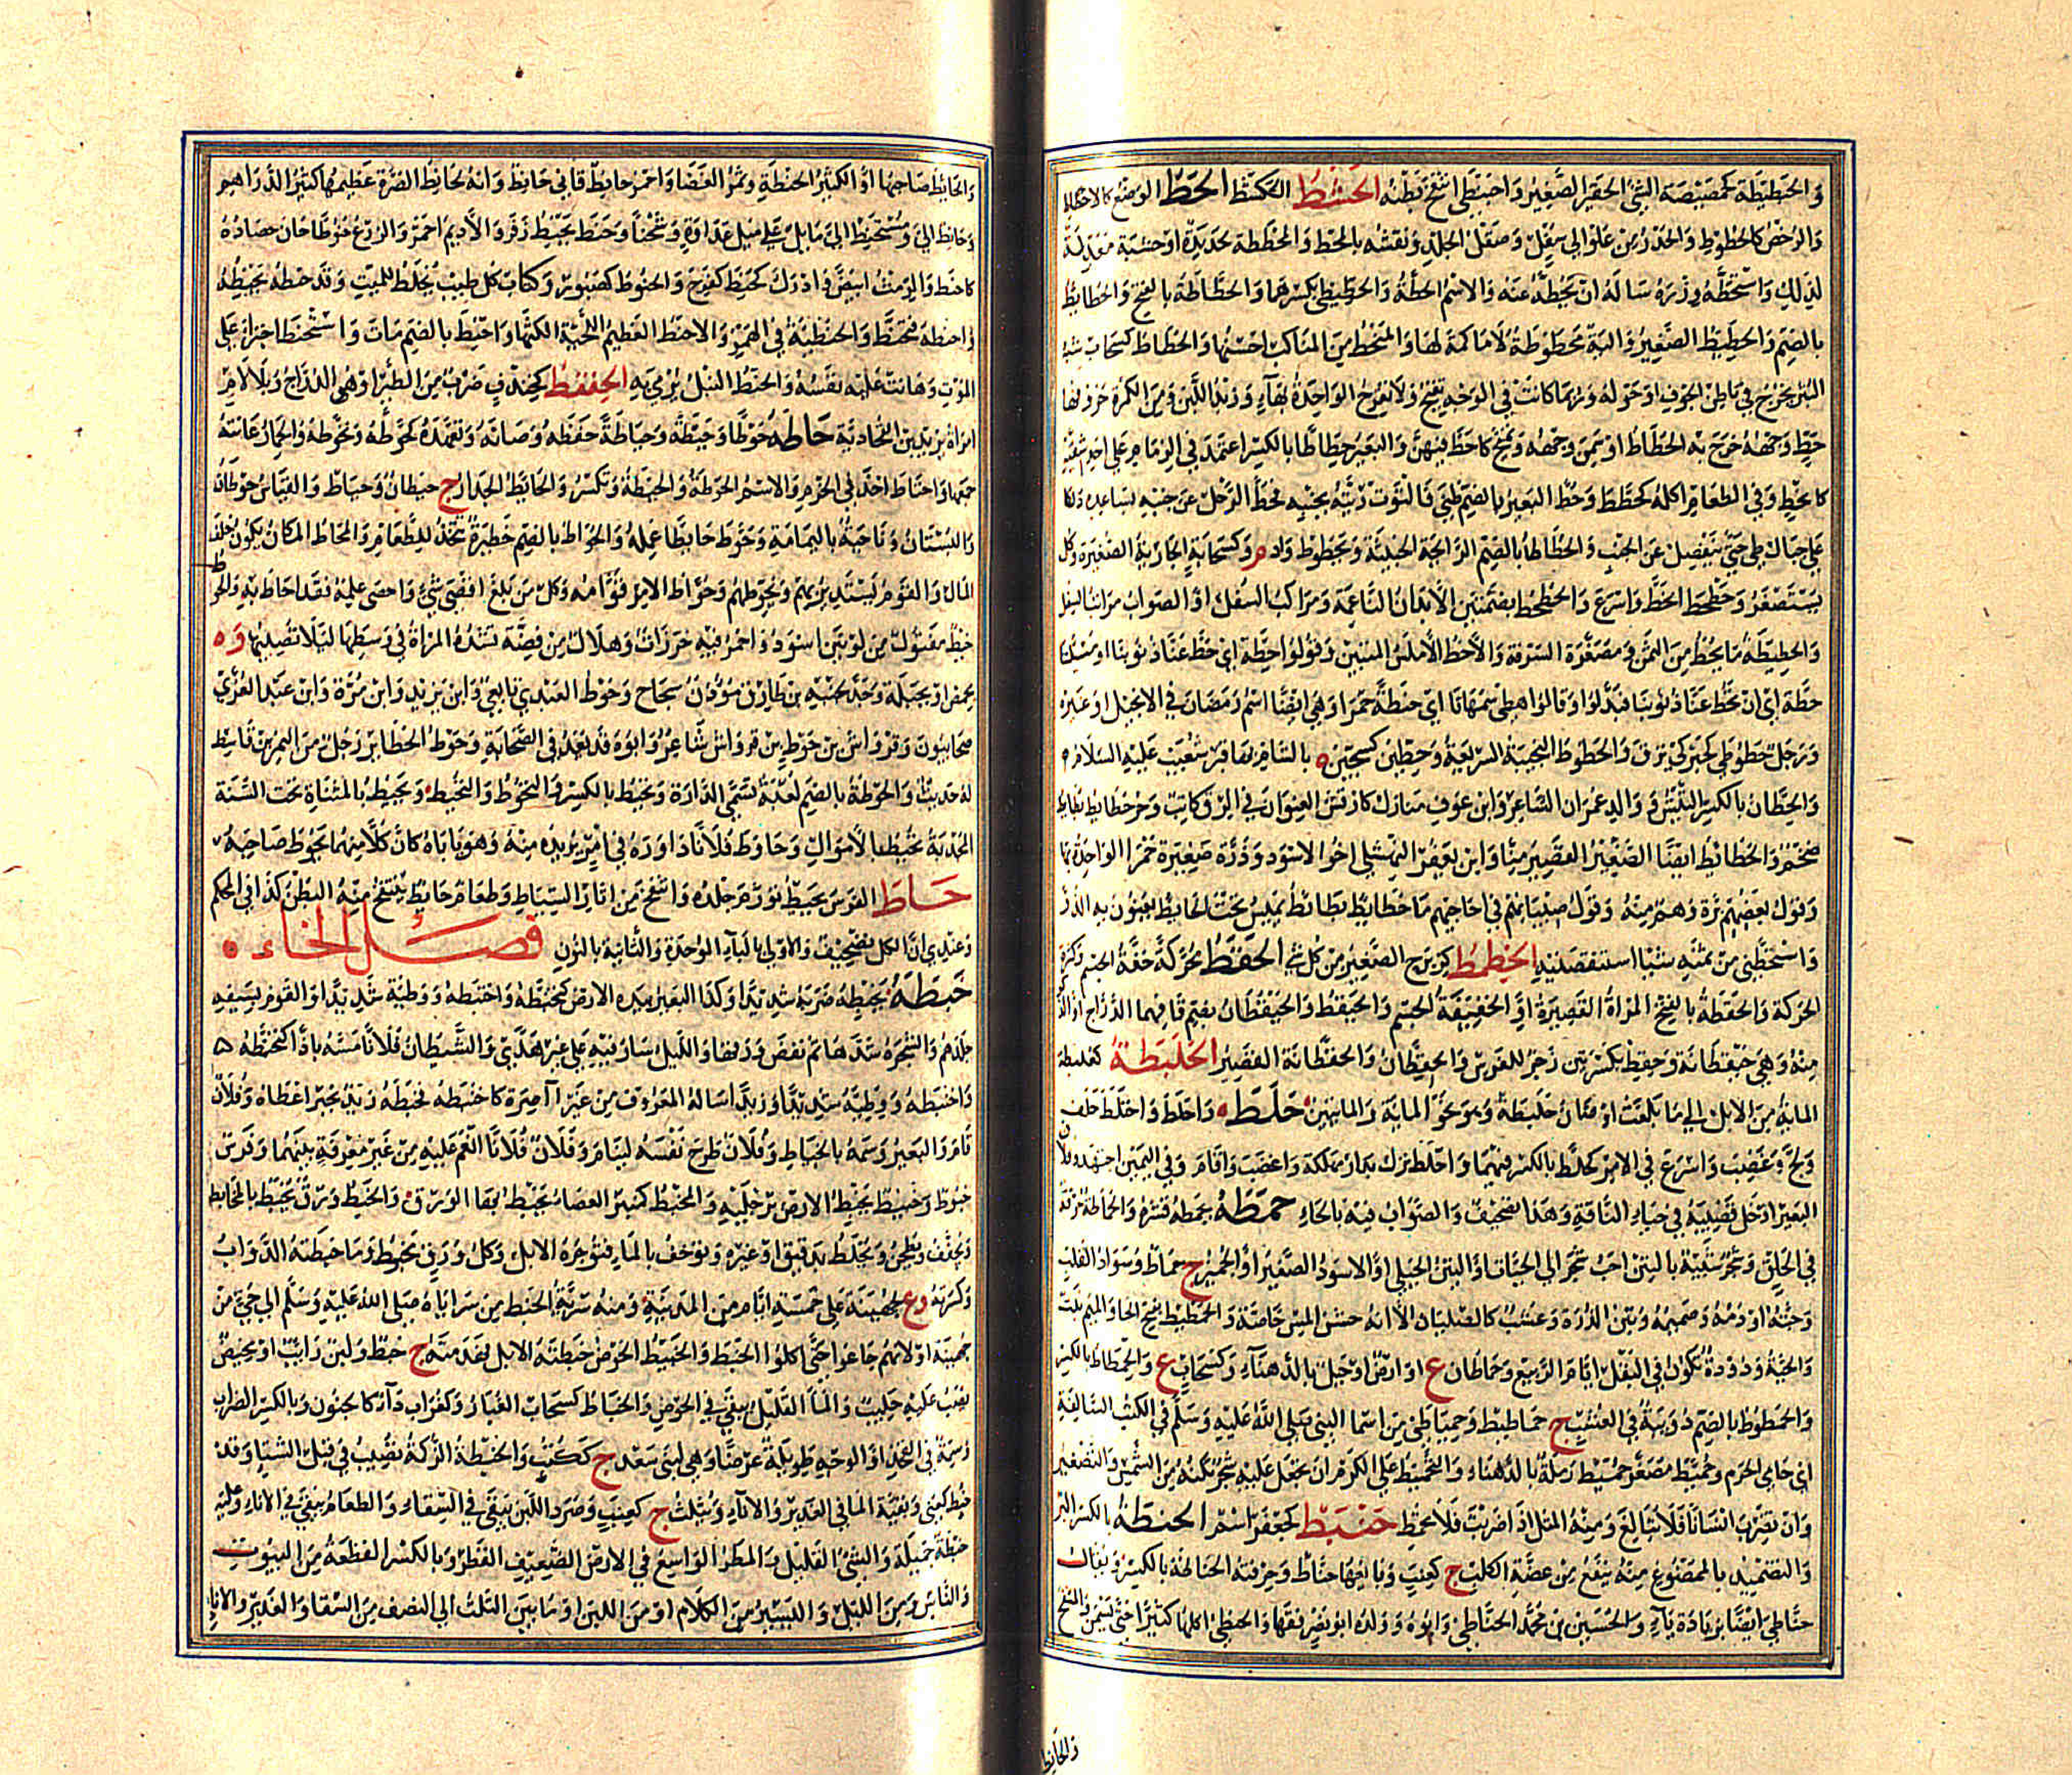 والحطيطة كمصيصة الشئ الحقير الصغير واحبنطى انتفخ بطنه الحشط الكشط الحط الوضع كالاحتطاط
والرخص كالحطوط والحدر من علو الى سفل وصقل الجلد ونقشه بالمحط والمحطة حديدة او خشبة معدة
لذلك واستحطه وزره ساله ان يحطه عنه والاسم الحطة والحطيطى بكسرهما والحطاطة بالفتح والحطائط
بالضم والحطيط الصغير والية محطوطة لا ماكمة لها والمنحط من المناكب احسنها والحطاط كسحاب شبه
البثر يخرج في باطن الحوق او حوله وربما كانت في الوجه تقيح ولا تقرح الواحدة بهاء وزبد اللبن ومن الكمرة حروفها
حط وجهه خرج به الحطاط او سمن وجهه وتهيج كاحط فيهن والبعير حطاطا بالكسر اعتمد في الزمام على احد شقيه
كانحط وفي الطعام اكله كحطط وحط البعير بالضم طنى فالتوت رئته بجنبه فحط الرجل عن جنبه بساعده دلكا
على حيال الطنى حتى ينفصل عن الجنب والحطاط بالضم الرائحة الخبيثة ويحطوط واد م وكسحابة الجارية الصغيرة وكل شئ
يستصغر وحطحط انحط واسرع والحطحط بضمتين الابدان الناعمة ومراكب السفل او الصواب مراتب السفل
والحطيطة ما يحط من الثمن ومصغرة السرفة والاحط الاملس المتنين وقولوا حطة اى حط عنا ذنوبنا او مسئلتنا
حطة اى ان تحط عنا ذنوبنا فبدلوا وقالوا هطى سمهاثا اى حنطة حمراء وهى ايضا اسم رمضان في الانجيل او غيره
ورجل حطوطى كحبركى نزق والحطوط النجيبة السريعة وحطين كسجين ه بالشام بها قبر شعيب عليه السلام
والحطان بالكسر التيس ووالد عمران الشاعر وابن عوف
وقول بعضهم ذرة وهم منه وقول صبيانهم في احاجيهم ما حطائط بطائط يميس تحت الحائط يعنون به الذر
واستحطني من ثمنه شيئا استنقصنيه الحطمط كزبرج الصغير من كل شئ الحفط محركة خفة الجسم وكثرة
الحركة والحقطة بالفتح المراة القصيرة او الخفيفة الجسم والحيقط والحيقطان بضم قافهما الدراج او الذكر
منه وهى حيقطانة وحقط بكسرتين زجر للفرس والحقطان والحقطانة القصير الحلبطة كعلبطة
المائة من الابل الى ما بلغت او ضان حلبطة وهو نحو المائة والمائتين حلط واحلط واحتلط حلف
ولج وغضب واسرع في الامر كحلط بالكسر فيهما واحلط نزل بدار مهلكة واغضب واقام وفي اليمين اجتهد وفلان
البعير ادخل قضيبه في حياء الناقة وهذا تصحيف والصواب فيه بالخاء حمطه يحمطه قشره والحماطة حرقة
في الحلق وشجر شبيه بالتين احب شجر الى الحيات او التين الجبلى او الاسود الصغير او الجميز ج حماط وسواد القلب
وحبته او دمه وصميمه وتبن الذرة وعشب كالصليان الا انه خشن المس خاصة والحمطيط بفتح الحاء والميم نبت
والحية ودودة تكون في البقل ايام الربيع وحماطان ع او ارض او جبل بالدهناء وكسحاب ع والحمطاط بالكسر
والحمطوط بالضم دويبة في العشب ج حماطيط وحمياطى من اسما النبى صلى الله عليه وسلم في الكتب السالفة
اى حامى الحرم وحميط مصغر حمسيط رملة بالدهناء والتحميط على الكرم ان تجعل عليه شجر يكنه من الشمس والتصغير
وان تضرب انسانا فلا تبالغ ومنه المثل اذا ضربت فلا تحمط حنبط كجعفر اسم الحنطة بالكسر البر
والتضميد بالممضوغ منه ينفع من عضة الكلب ج كعنب وبائعها حناط وحرفته الحناطة بالكسر ويقال
حناطى ايضا بزيادة ياء والحسين بن محمد الحناطى وابوه وولده ابو نصر فقها والحنطى اكلها كثيرا حتى يسمن والمنتفخ
والحانط
والحانط صاحبها او الكثير الحنطة وثمر الغضا واحمر حانط قانى حانط وانه لحانط الصرة عظيمها كثير الدراهم
وحانط الى ومستحنط الى مائل على ميل عداوة وشحنا وحنط يحنط زفر والاديم احمر والزرع حنوطا حان حصاده
كاحنط والرمث ابيض وادرك كحنط كفرح والحنوط كصبور وككتاب كل طيب يخلط للميت وقد حنطه يحنطه
واحنطه فتحنط والحنطئة في الهمز والاحنط العظيم اللحية الكثها واحنط بالضم مات واستحنط اجترا على
الموت وهانت عليه نفسه والحنط النبل يرمى به الحنقط كخندف ضرب من الطير او هى الدراج وبلا لام
امراة يزيد بن القحادية حاطه حوطا وحيطة وحياطة حفظه وصانه وتعهده كحوطه وتحوطه والحمار عانته
جمعها واحتاط اخذ في الحزم والاسم الحوطة والحيطة وتكسر والحائط الجدار ج حيطان وحياط والقياس حوطان
والبستان وناحية باليمامة وحوط حائطا عمله والحواط بالضم حظيرة تتخذ للطعام والمحاط المكان يكون خلف
المال والقوم يستدير بهم ويحوطهم وحواط الامر قوامه وكل من بلغ اقصى شئ واحصى علمه فقد احاط به والحوط
خيط مفتول من لونين اسود واحمر فيه خرزات وهلال من فضة تشده المراة في وسطها لئلا تصيبها وه
بحمص او بجبلة
صحابيون وقرواش بن حوط بن قرواش شاعر وابوه قد يعد في الصحابة وحوط الحظائر رجل من النمر بن قاسط
له حديث والحوطة بالضم لعبة تسمى الدارة وتحيط بالكسر والتحوط والتحيط ويحيط بالمثناة تحت السنة
المجدبة تحيط بالاموال وحاوط فلانا داوره في امر يريده منه وهو ياباه كان كلا منهما يحوط صاحبه
حاط الفرس يحيط تورم جلده وانتفخ من اثار السياط وطعام حائط ينتفخ منه البطن كذا في المحكم
وعندى ان الكل تصحيف والاولى بالباء الموحدة والثانية بالنون فصل الخاء
خبطه يخبطه ضربه شديدا وكذا البعير بيده الارض كتخبطه واختبطه ووطئه شديدا والقوم بسيفه
جلدهم والشجرة شدها ثم نفض ورقها والليل سار فيه على غير هدى والشيطان فلانا مسه باذى كتخبطه
واختبطه ووطئه شديدا وزيدا ساله المعروف من غير آصرة كاختبطه فخبطه زيد بخير اعطاه وفلان
قام والبعير وسمه بالخباط وفلان طرح نفسه لينام وفلان فلانا انعم عليه من غير معرفة بينهما وفرس
خبوط وخبيط يخبط الارض برجليه والمخبط كمنبر العصا يخبط بها الورق والخبط ورق يخبط بالمخابط
ويجفف ويطحن ويخلط بدقيق او غيره ويوخف بالماء فيوجره الابل وكل ورق مخبوط وما خبطته الدواب
وكسرته وع لجهينة على خمسة ايام من المدينة ومنه سرية الخبط من سراياه صلى الله عليه وسلم الى حى من
جهينة او لانهم جاعوا حتى اكلوا الخبط والخبيط الحوض خبطته الابل فهدمته ج خبط ولبن رائب او مخيض
يصب عليه حليب والماء القليل يبقى في الحوض والخباط كسحاب الغبار وكغراب داء كالجنون وبالكسر الضراب
وسمة في الفخذ او الوجه طويلة عرضا وهى لبنى سعد ج ككتب والخبطة الزكمة تصيب في قبل الشتاء وقد
خبط كعنى وبقية الماء في الغدير والاناء وتثلث ج كعنب وصرد اللبن يبقى في السقاء والطعام يبقى في الاناء وعليه
خبطة جميلة والشئ القليل والمطر الواسع في الارض الضعيف القطر وبالكسر القطعة من البيوت
والناس ومن الليل واليسير من الكلام او من اللبن او ما بين الثلث الى النصف من السقاء والغدير والاناء